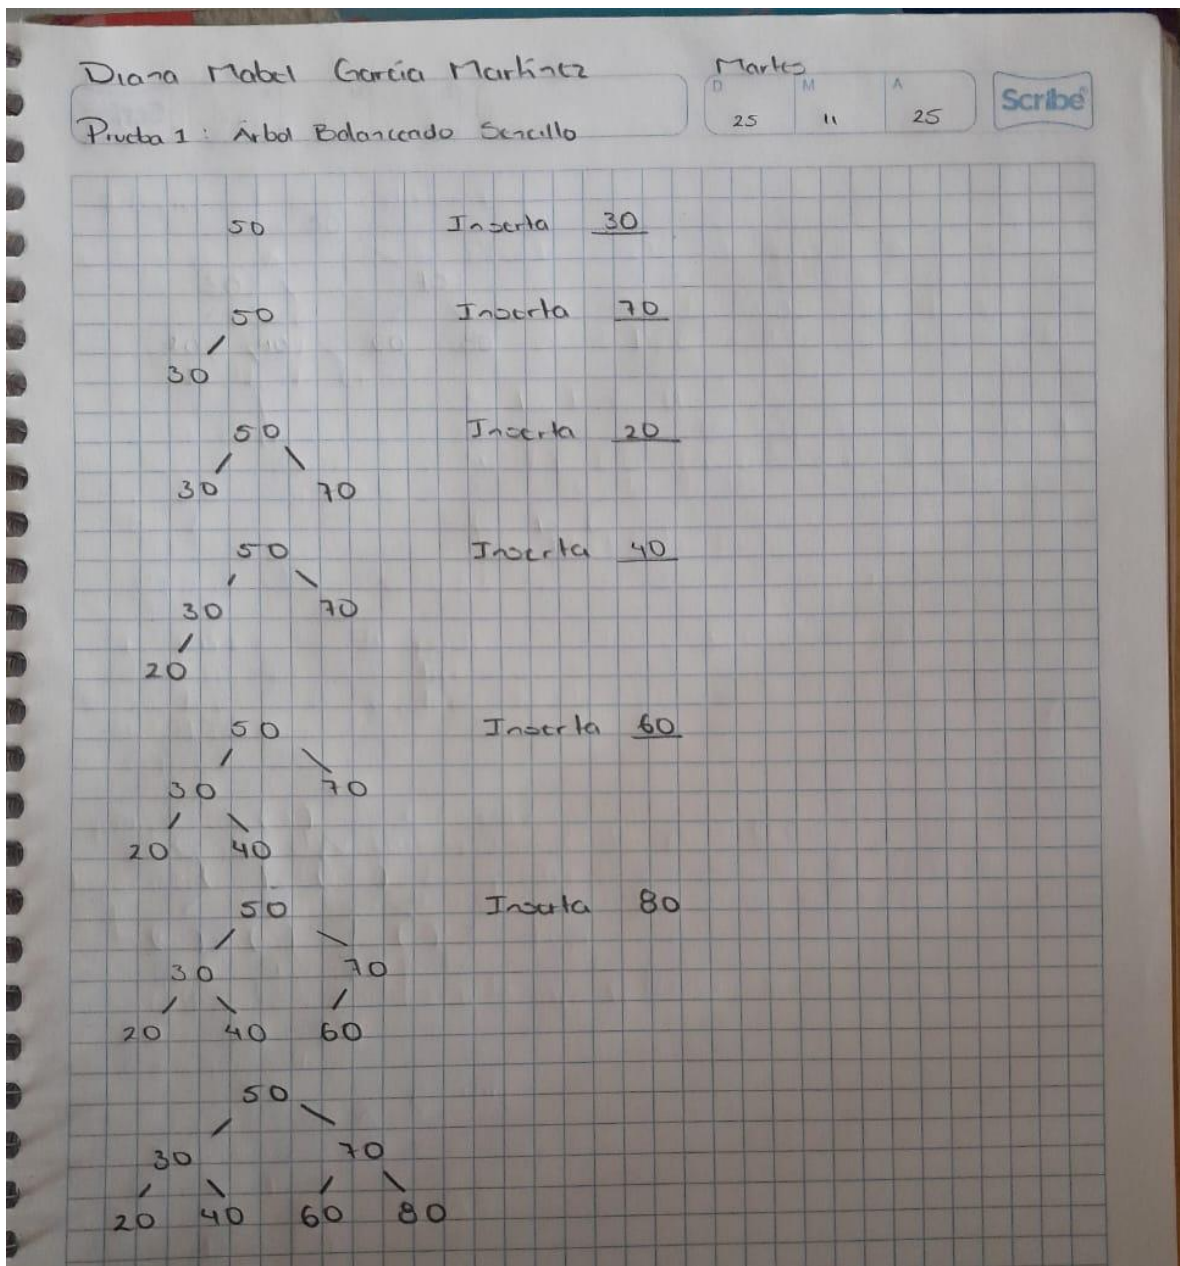 Diana Mabel García Martínez
Martes
D M A
25 11 25
Scribe
Prueba 1: Árbol Balanceado Sencillo
50 Inserta 30
50 Inserta 70
30
50 Inserta 20
30 70
50 Inserta 40
30 70
20
50 Inserta 60
30 70
20 40
50 Inserta 80
30 70
20 40 60
50
30 70
20 40 60 80